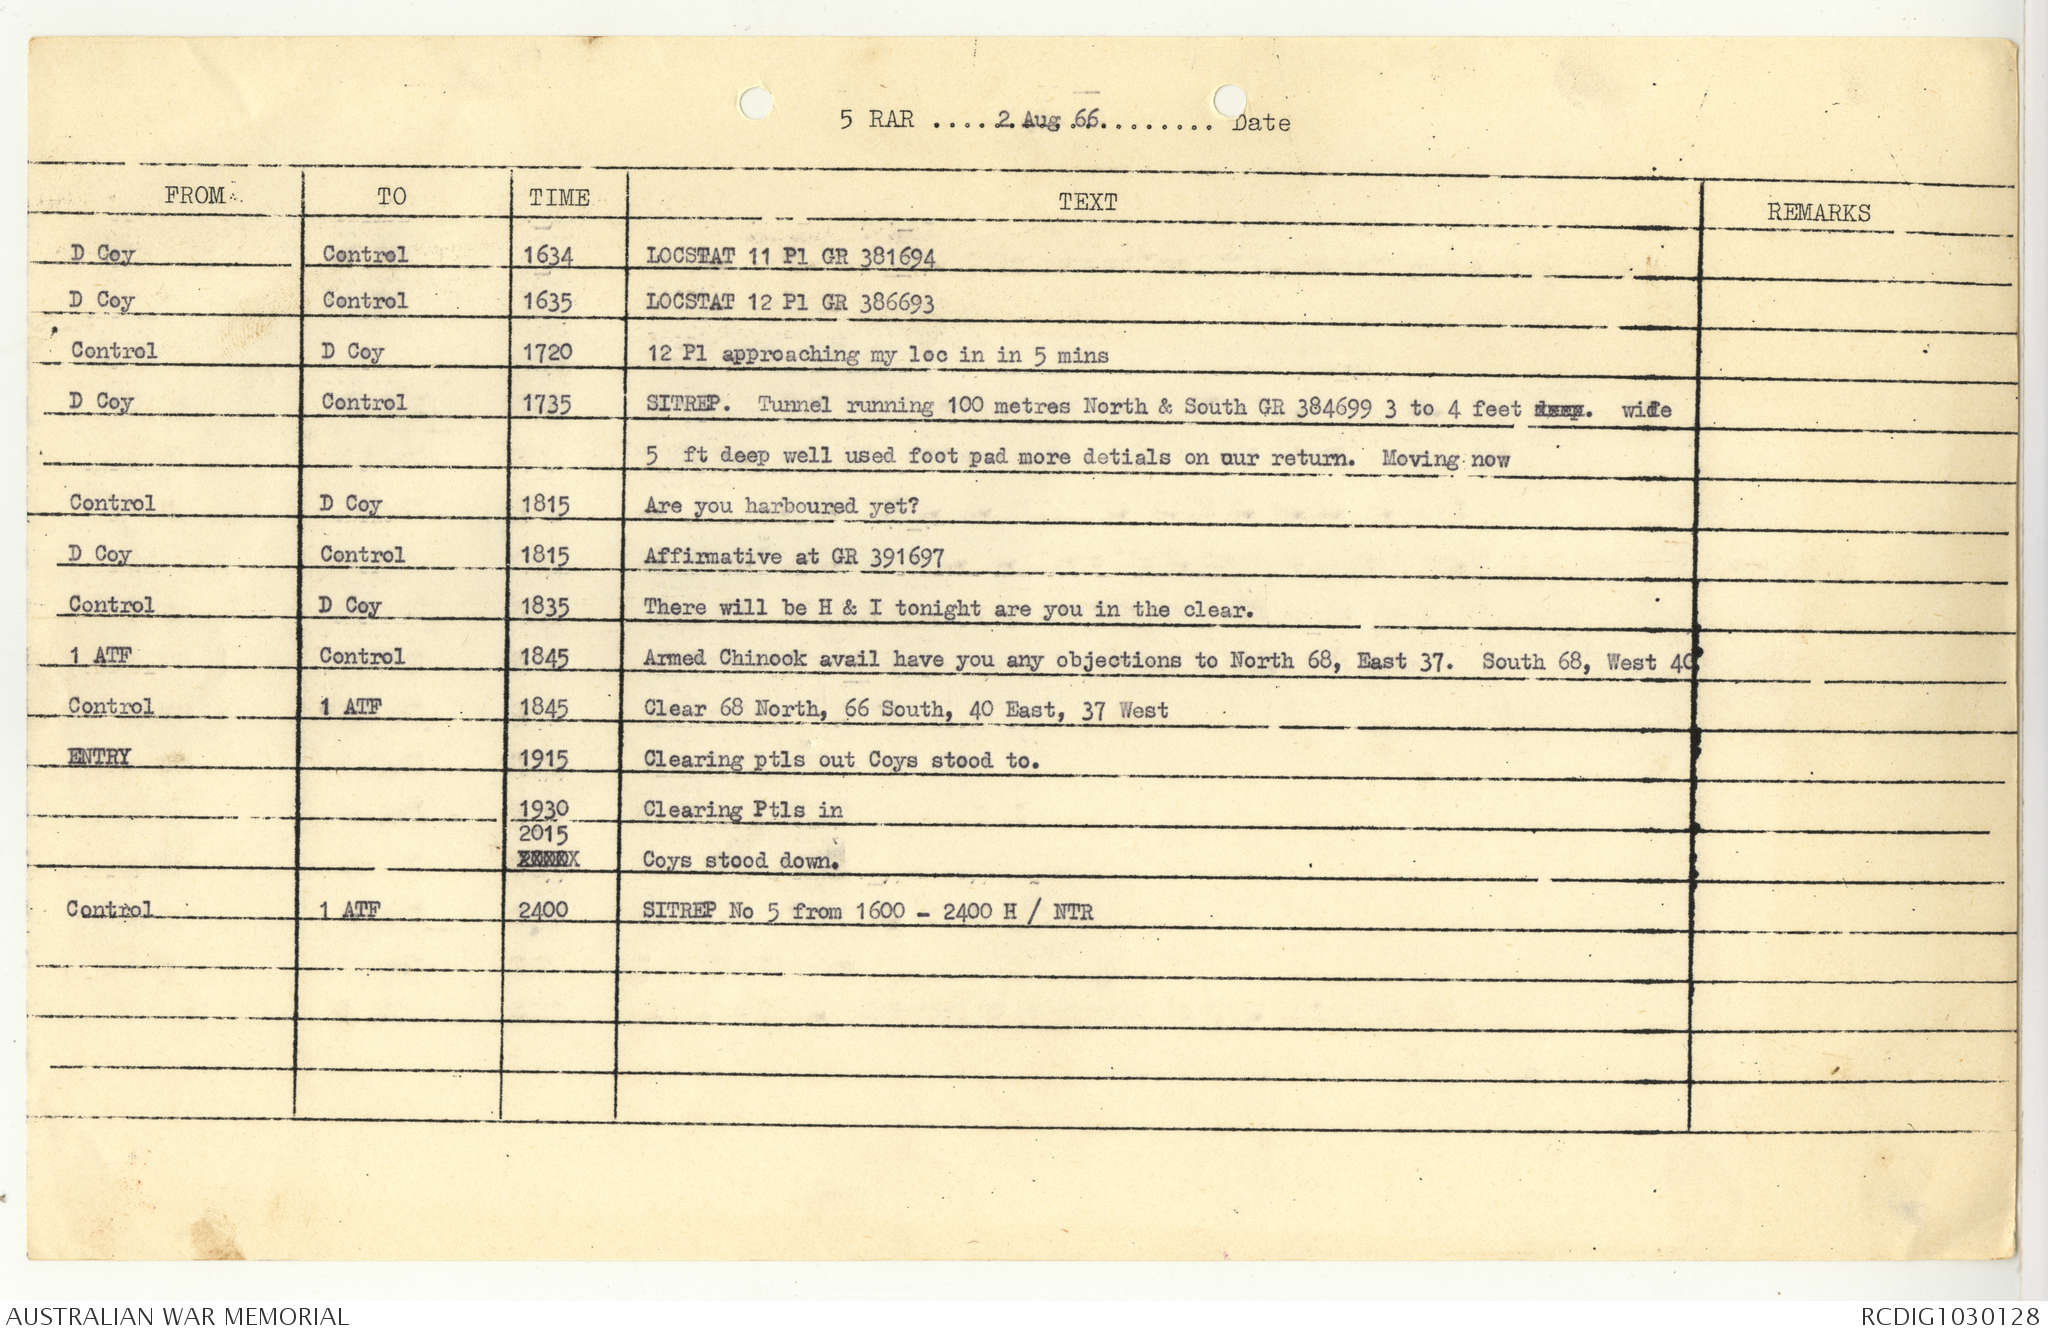 5 RAR ....2 Aug 66........ Date
FROM TO TIME TEXT REMARKS
D Coy Control 1634 LOCSTAT 11 Pl GR 381694
D Coy Control 1635 LOCSTAT 12 Pl GR 386693
Control D Coy 1720 12 Pl approaching my loc in in 5 mins
D Coy Control 1735 SITREP. Tunnel running 100 metres North & South GR 384699 3 to 4 feet deep. wide
5 ft deep well used foot pad more detials on our return. Moving now
Control D Coy 1815 Are you harboured yet?
D Coy Control 1815 Affirmative at GR 391697
Control D Coy 1835 There will be H & I tonight are you in the clear.
1 ATF Control 1845 Armed Chinook avail have you any objections to North 68, East 37. South 68, West 40
Control 1 ATF 1845 Clear 68 North, 66 South, 40 East, 37 West
ENTRY 1915 Clearing ptls out Coys stood to.
1930 Clearing Ptls in
2015
Coys stood down.
Control 1 ATF 2400 SITREP No 5 from 1600 - 2400 H / NTR
AUSTRALIAN WAR MEMORIAL RCDIG1030128